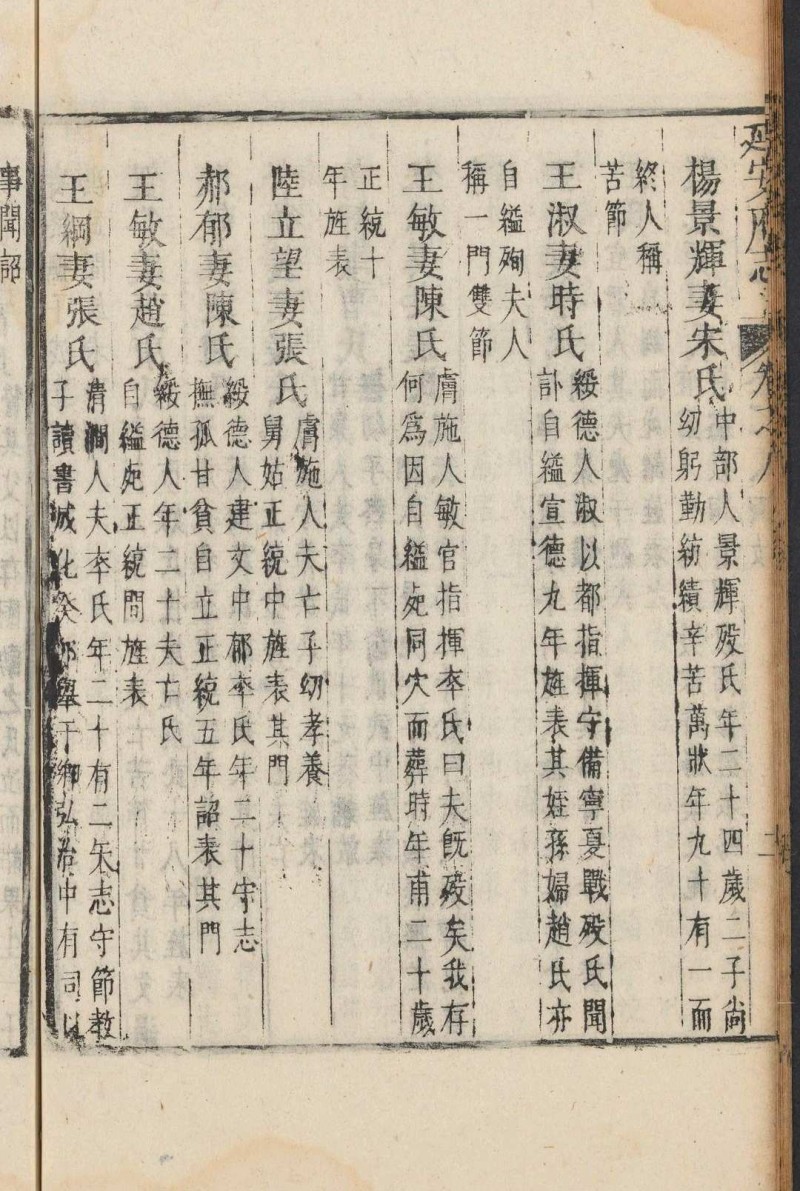 延安府志 卷之八
楊景輝妻宋氏
中部人景輝歿氏年二十四歲二子尚
幼躬勤紡績辛苦萬狀年九十有一而
終人稱
苦節
王淑妻時氏
綏德人淑以都指揮守備寧夏戰歿氏聞
訃自縊宣德九年旌表其姪孫婦趙氏亦
自縊殉夫人
稱一門雙節
王敏妻陳氏
膚施人敏官指揮卒氏曰夫既歿矣我存
何為因自縊死同穴而葬時年甫二十歲
正統十
年旌表
陸立望妻張氏
膚施人夫亡子幼孝養
舅姑正統中旌表其門
郝郁妻陳氏
綏德人建文中郁卒氏年二十守志
撫孤甘貧自立正統五年詔表其門
王敏妻趙氏
綏德人年二十夫亡氏
自縊死正統間旌表
王綱妻張氏
清澗人夫卒氏年二十有二矢志守節教
子讀書成化癸卯舉于鄉弘治中有司以
事聞詔